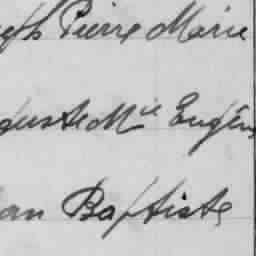 eph Pierre Marie
guste Mie Eugèn
an Baptiste